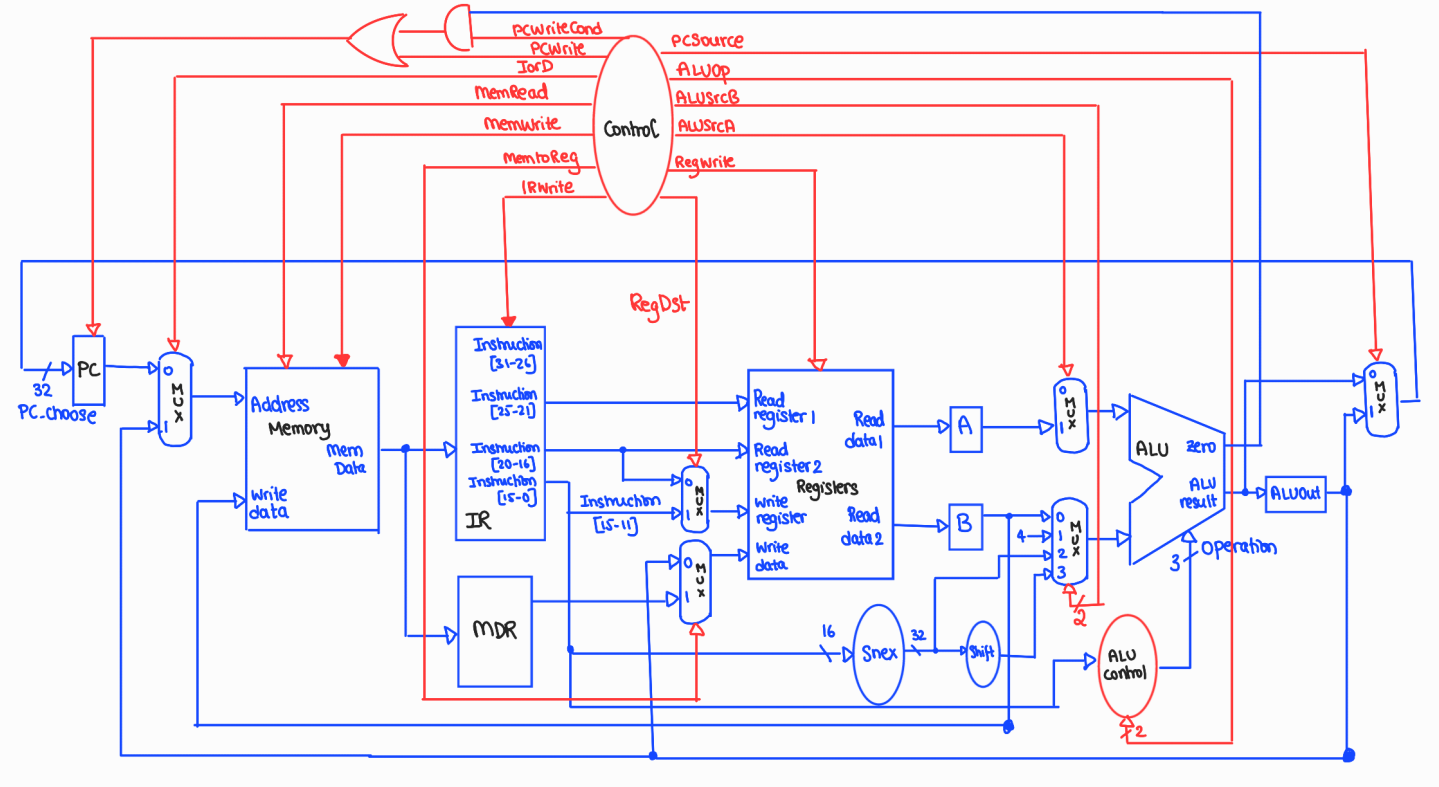 PCWriteCond
PCWrite
IorD
MemRead
MemWrite
MemtoReg
IRWrite
Control
PCSource
ALUOp
ALUSrcB
ALUSrcA
RegWrite
RegDst
32
PC_choose
PC
0
MUX
1
Address
Memory
Mem
Data
Write
data
Instruction
[31-26]
Instruction
[25-21]
Instruction
[20-16]
Instruction
[15-0]
IR
Instruction
[15-11]
MDR
0
MUX
1
0
MUX
1
Read
register 1
Read
register 2
Write
register
Write
data
Registers
Read
data 1
Read
data 2
A
B
4
0
MUX
1
0
1
2
3
MUX
2
16
Snex
32
Shift
ALU
Zero
ALU
result
3
Operation
ALU
control
2
ALUOut
0
MUX
1